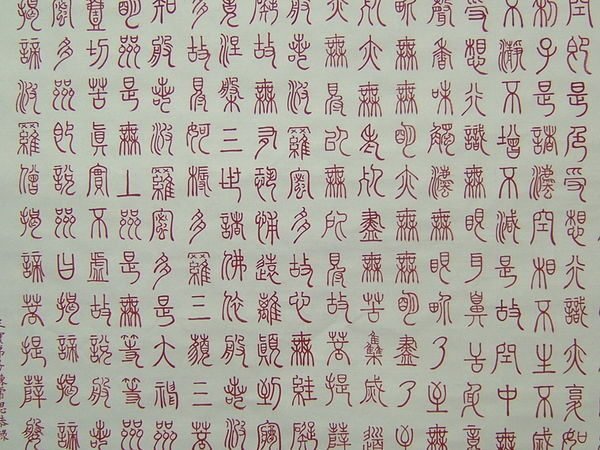 空即是色受想行識亦復如
利子是諸法空相不生不滅
不瀞不增不減是故空中無
受想行識無眼耳鼻舌身意
聲香味觸法無眼界乃至無
界無無明亦無無明盡乃至
死亦無老死盡無苦集滅道
亦無得以無所得故菩提薩
般若波羅蜜多故心無罣礙
礙故無有恐怖遠離顛倒夢
竟涅槃三世諸佛依般若波
多故得阿耨多羅三藐三菩
知般若波羅蜜多是大神咒
明咒是無上咒是無等等咒
一切苦真實不虛故說般若
蜜多咒即說咒曰揭諦揭諦
揭諦波羅僧揭諦菩提薩婆
三寶弟子